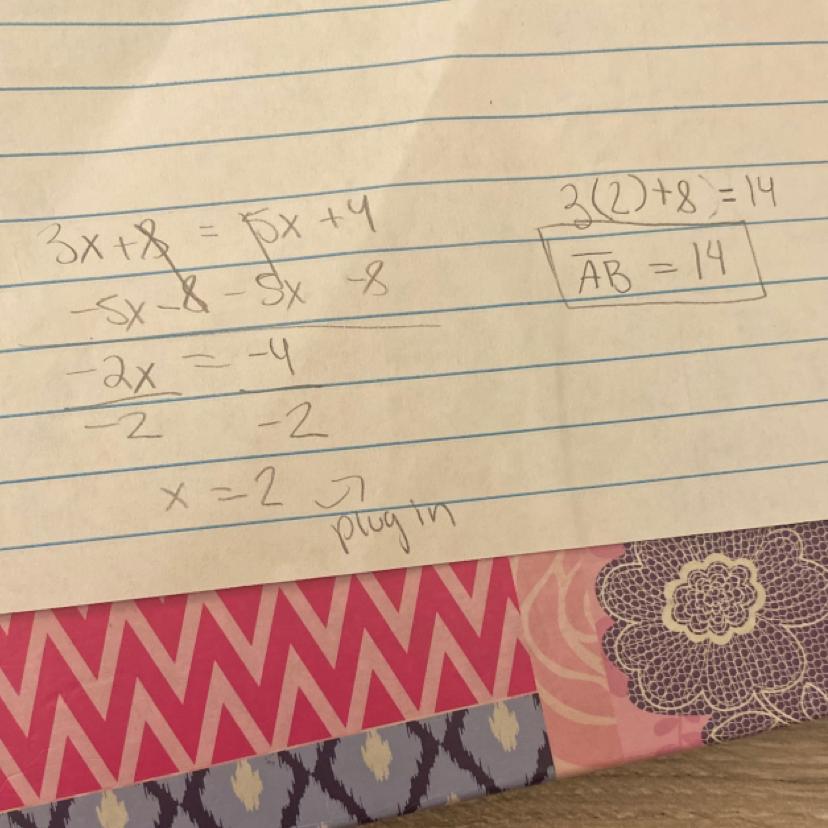 3x+8 = 5x +4
-5x -8 -5x -8
-2x = -4
-2 -2
x = 2
plug in
3(2)+8 = 14
AB = 14